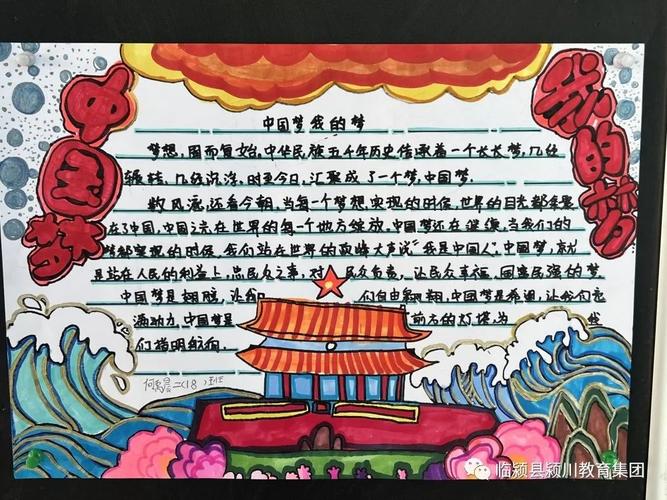 中国梦
我的梦
中国梦我的梦
梦想,周而复始,中华民族五千年历史传承着一个长长梦,几经
辗转,几经沉浮,时至今日,汇聚成了一个梦,中国梦。
数风流,还看今朝,当每一个梦想实现的时候,世界的目光都聚集
在了中国,中国
在世界的每一个地方绽放。中国梦还在继续,当我们的
梦都实现的时候,我们站在世界的顶峰大声说"我是中国人"。中国梦,就
是站在人民的利益上,忠民众之事,对 民众负责,让民众幸福,国富民强的梦
中国梦是翅膀,让我 们自由翱翔,中国梦是希望,让我们充
满动力,中国梦是 前方的灯塔为 我
们指明航向。
何禹晨 二(18)班
临颍县颍川教育集团